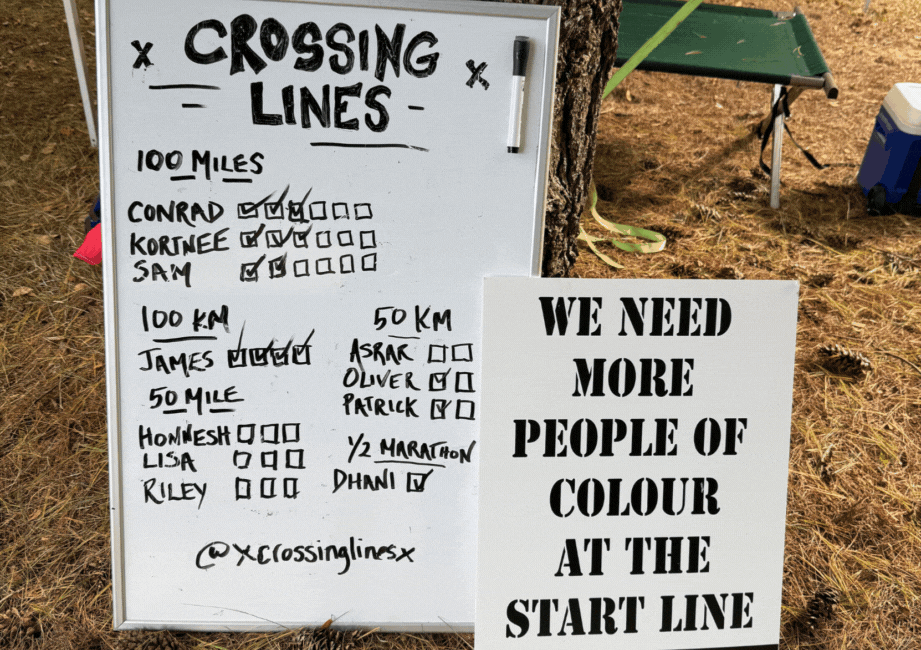 x CROSSING x
LINES
100 MILES
CONRAD ☑☑☑☐☐☐
KORTNEE ☑☑☑☐☐☐
SAM ☑☑☐☐☐☐
100 KM
JAMES ☑☑☑☑
50 MILE
HONNESH ☐☐☐
LISA ☐☐☐
RILEY ☐☐☐
50 KM
ASRAR ☐☐
OLIVER ☑☐
PATRICK ☑☐
1/2 MARATHON
DHANI ☑
@xcrossinglinesx
WE NEED
MORE
PEOPLE OF
COLOUR
AT THE
START LINE